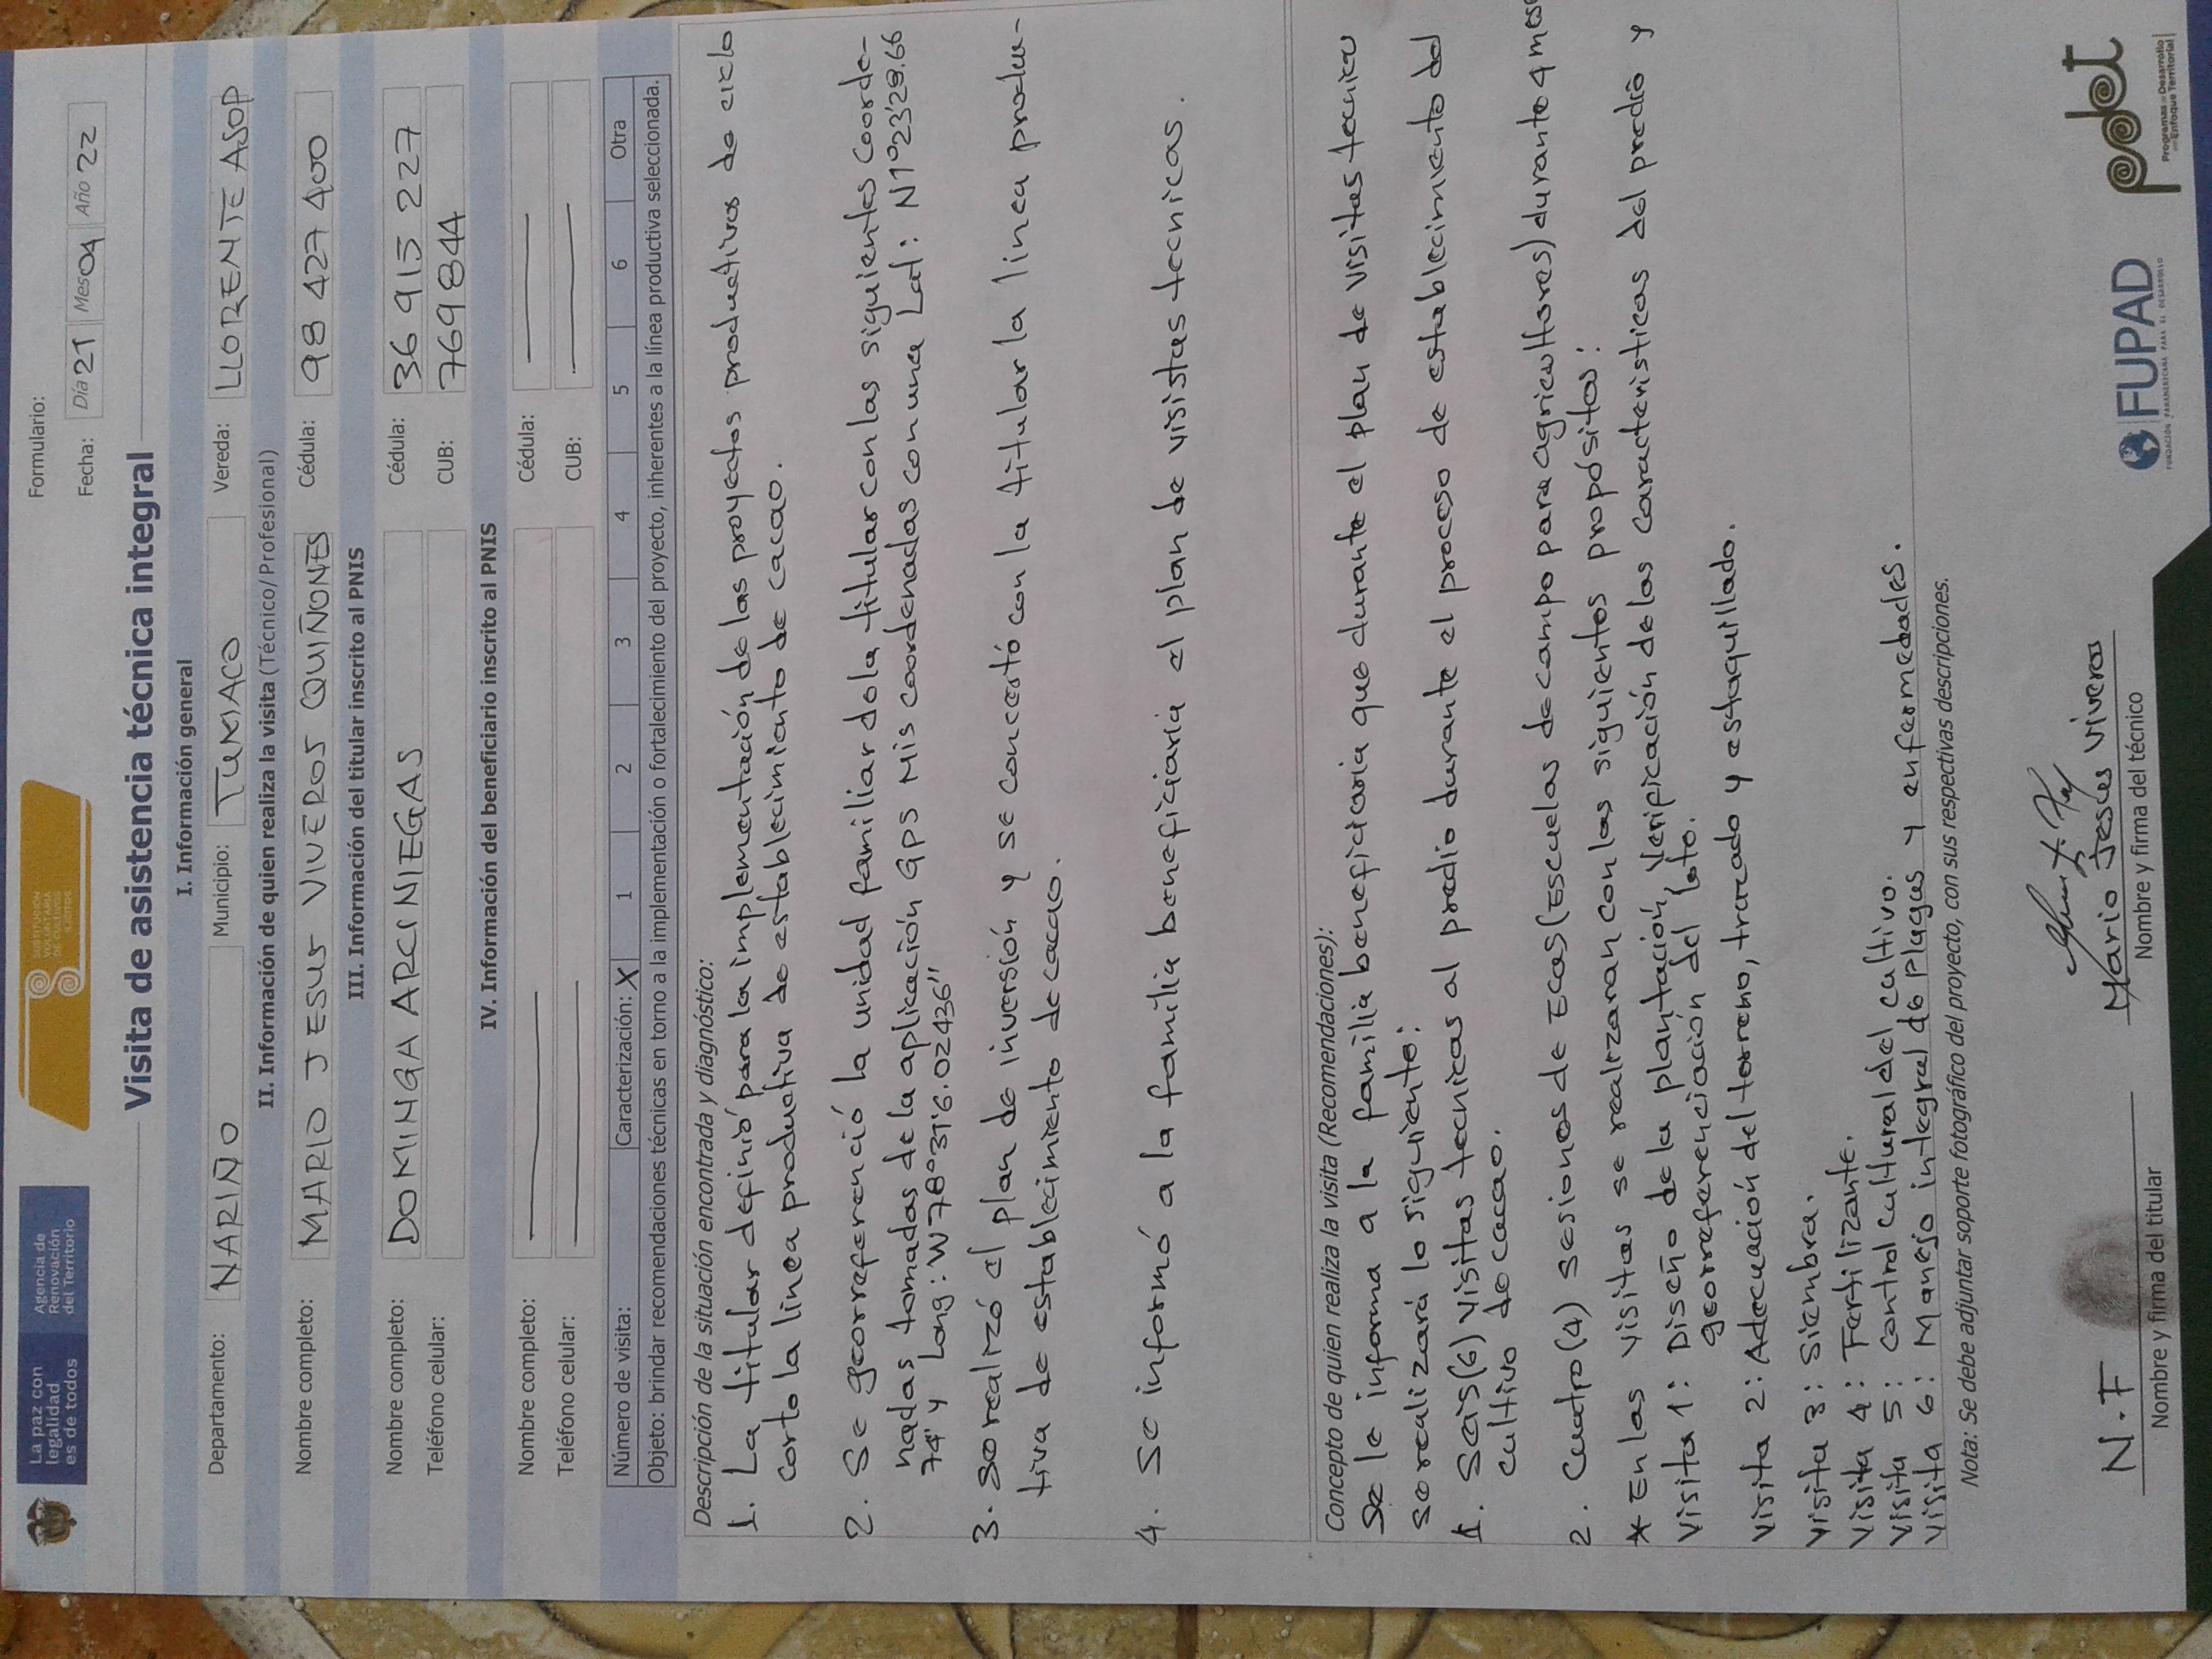 La paz con
legalidad
es de todos
Agencia de
Renovación
del Territorio
SUSTITUCIÓN
VOLUNTARIA
DE CULTIVOS
ILÍCITOS
Formulario:
Fecha: Día 21 Mes 04 Año 22
Visita de asistencia técnica integral
I. Información general
Departamento: NARIÑO Municipio: TUMACO Vereda: LLORENTE ASOP
II. Información de quien realiza la visita (Técnico/Profesional)
Nombre completo: MARIO JESUS VIVEROS QUIÑONES Cédula: 98 427 400
III. Información del titular inscrito al PNIS
Nombre completo: DOMINGA ARCINIEGAS Cédula: 36 915 227
Teléfono celular: CUB: 769844
IV. Información del beneficiario inscrito al PNIS
Nombre completo: Cédula:
Teléfono celular: CUB:
Número de visita: Caracterización: X 1 2 3 4 5 6 Otra
Objeto: brindar recomendaciones técnicas en torno a la implementación o fortalecimiento del proyecto, inherentes a la línea productiva seleccionada.
Descripción de la situación encontrada y diagnóstico:
1. La titular definió para la implementación de los proyectos productivos de ciclo
corto la línea productiva de establecimiento de cacao.
2. Se georreferenció la unidad familiar de la titular con las siguientes coorde-
nadas tomadas de la aplicación GPS Mis coordenadas con una Lat: N1°23'28.66
74" y Long: W78°31'6.02436"
3. se realizó el plan de inversión y se concertó con la titular la linea produc-
tiva de establecimiento de cacao.
4. Se informó a la familia beneficiaria el plan de visistas tecnicas.
Concepto de quien realiza la visita (Recomendaciones):
Se le informa a la familia beneficiaria que durante el plan de visitas tecnicas
se realizará lo siguiente:
1. Seis (6) visitas tecnicas al predio durante el proceso de establecimiento del
cultivo de cacao.
2. Cuatro (4) sesiones de Ecas (Escuelas de campo para agricultores) durante 4 mese
* En las visitas se realizaran con los siguientes propósitos:
Visita 1: Diseño de la plantación, Verificación de los caracteristicas del predio y
georreferenciación del lote.
Visita 2: Adecuación del terreno, trazado y estaquillado.
Visita 3: Siembra.
Visita 4: Fertilizante.
Visita 5: Control cultural del cultivo.
Visita 6: Manejo integral de plagas y enfermedades.
Nota: Se debe adjuntar soporte fotográfico del proyecto, con sus respectivas descripciones.
N.F
Mario Jesus Viveros
Nombre y firma del titular
Nombre y firma del técnico
FUPAD
FUNDACIÓN PANAMERICANA PARA EL DESARROLLO
pdet
Programas de Desarrollo
con Enfoque Territorial